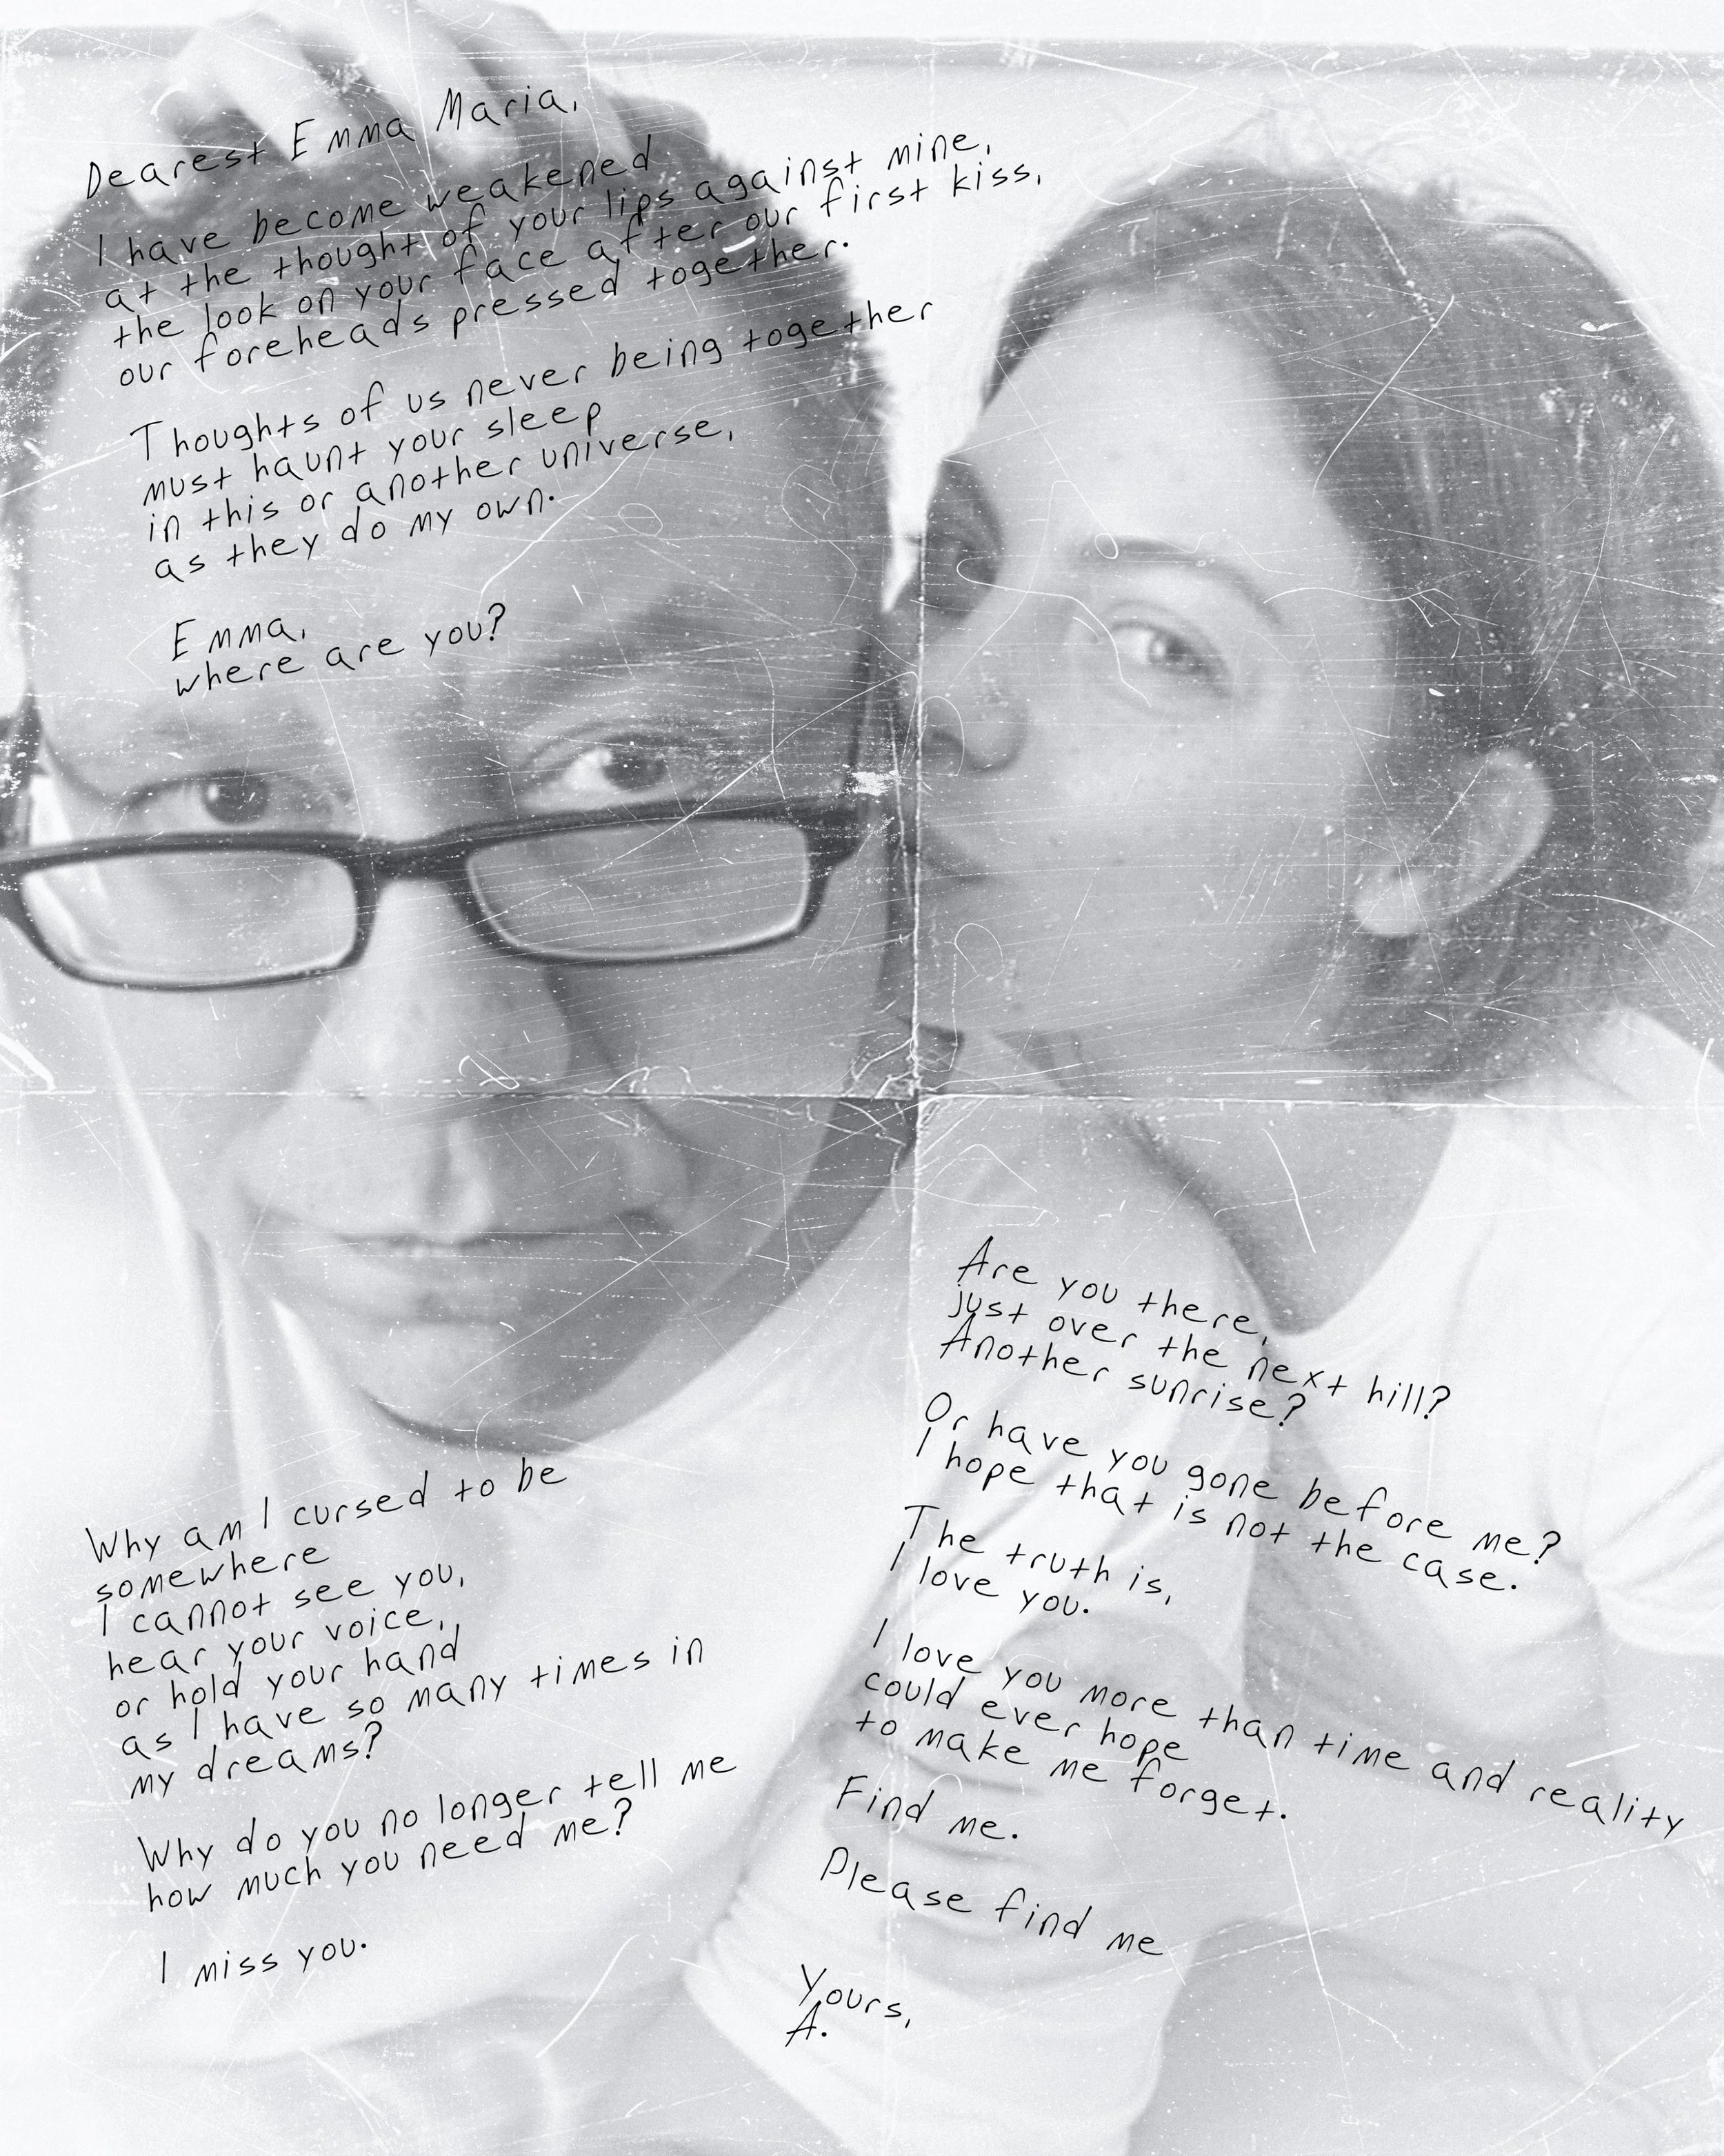 Dearest Emma Maria,
I have become weakened
at the thought of your lips against mine,
the look on your face after our first kiss,
our foreheads pressed together.
Thoughts of us never being together
must haunt your sleep
in this or another universe,
as they do my own.
Emma,
where are you?
Why am I cursed to be
somewhere
I cannot see you,
hear your voice,
or hold your hand
as I have so many times in
my dreams?
Why do you no longer tell me
how much you need me?
I miss you.
Are you there,
just over the next hill?
Another sunrise?
Or have you gone before me?
I hope that is not the case.
The truth is,
I love you.
I love you more than time and reality
could ever hope
to make me forget.
Find me.
Please find me
Yours,
A.